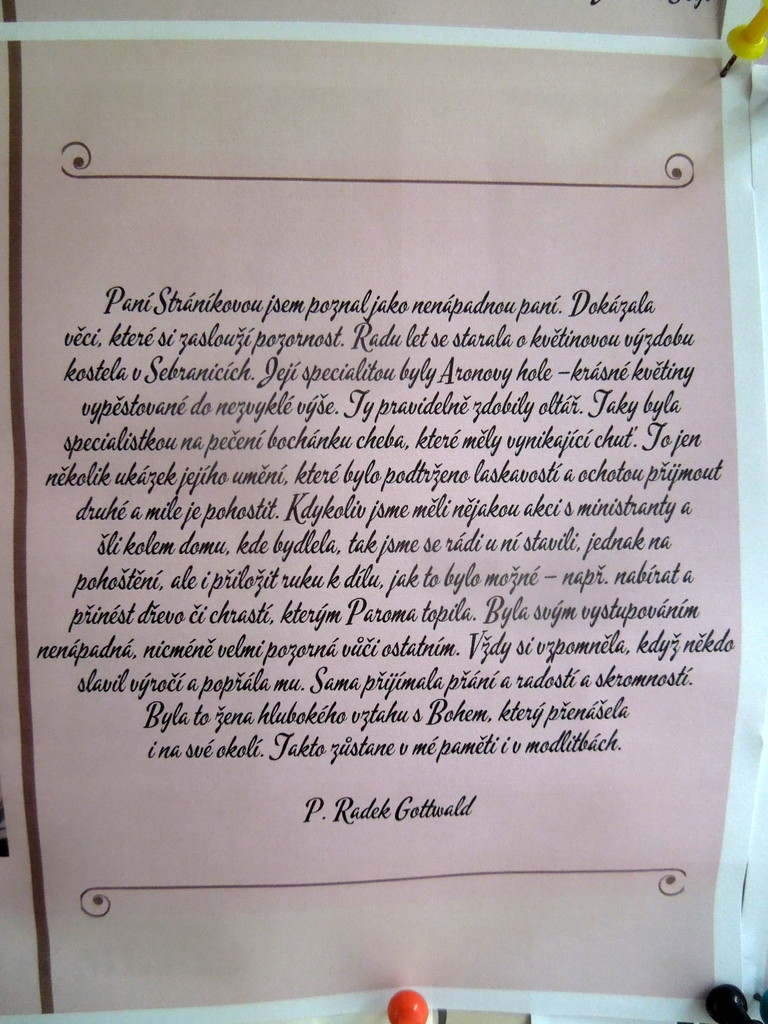 Paní Stránikovou jsem poznal jako nenápadnou paní. Dokázala
věci, které si zaslouží pozornost. Řadu let se starala o květinovou výzdobu
kostela v Sebranicích. Její specialitou byly Aronovy hole – krásné květiny
vypěstované do nezvyklé výše. Ty pravidelně zdobily oltář. Taky byla
specialistkou na pečení bochánku cheba, které měly vynikající chuť. To jen
několik ukázek jejího umění, které bylo podtrženo laskavostí a ochotou přijmout
druhé a mile je pohostit. Kdykoliv jsme měli nějakou akci s ministranty a
šli kolem domu, kde bydlela, tak jsme se rádi u ní stavili, jednak na
pohoštění, ale i přiložit ruku k dílu, jak to bylo možné – např. nabírat a
přinést dřevo či chrastí, kterým Paroma topila. Byla svým vystupováním
nenápadná, nicméně velmi pozorná vůči ostatním. Vždy si vzpomněla, když někdo
slavil výročí a popřála mu. Sama přijímala přání a radostí a skromností.
Byla to žena hlubokého vztahu s Bohem, který přenášela
i na své okolí. Takto zůstane v mé paměti i v modlitbách.
P. Radek Gottwald